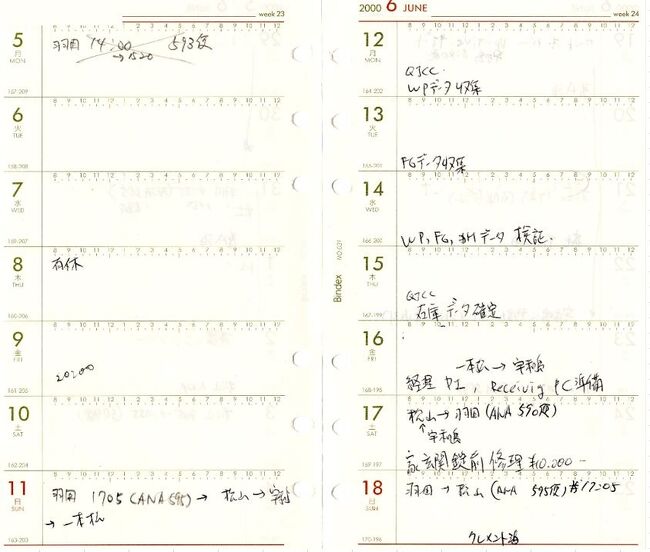 week 23
5
月
MON
羽田 14:00 593便
→1520
167-209
6
火
TUE
168-208
7
水
WED
169-207
8
木
THU
有休
160-206
9
金
FRI
20:00
161-205
10
土
SAT
162-204
11
日
SUN
羽田 1705 (ANA 595) → 松山 → 宇和島
→ 一本松
163-203
2000 6 JUNE
week 24
12
月
MON
QICC
WPデータ収集
164-202
13
火
TUE
FGデータ収集
165-201
14
水
WED
WP, FG, データ 検証.
166-200
15
木
THU
QICC
在庫データ確定
167-199
16
金
FRI
一本松 → 宇和島
経理 Receiving PC準備
168-196
17
土
SAT
松山 → 羽田 (ANA 590便)
↑
宇和島
玄関錠前修理 ¥10.000-
169-197
18
日
SUN
羽田 → 松山 (ANA 595便) 17:05
クレメント泊
170-196
Bindex NO.021